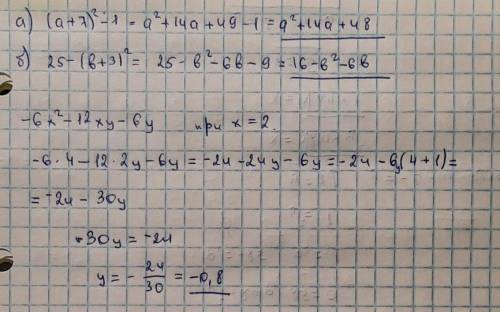 а) (а+7)²-1 = а²+14а+49-1 = а²+14а+48
б) 25-(в+3)² = 25-в²-6в-9 = 16-в²-6в
-6x²-12xy-6y при x=2.
-6·4-12·2y-6y = -24-24y-6y = -24-6y(4+1)=
= -24-30y
-30y = -24
y = - 24/30 = -0,8